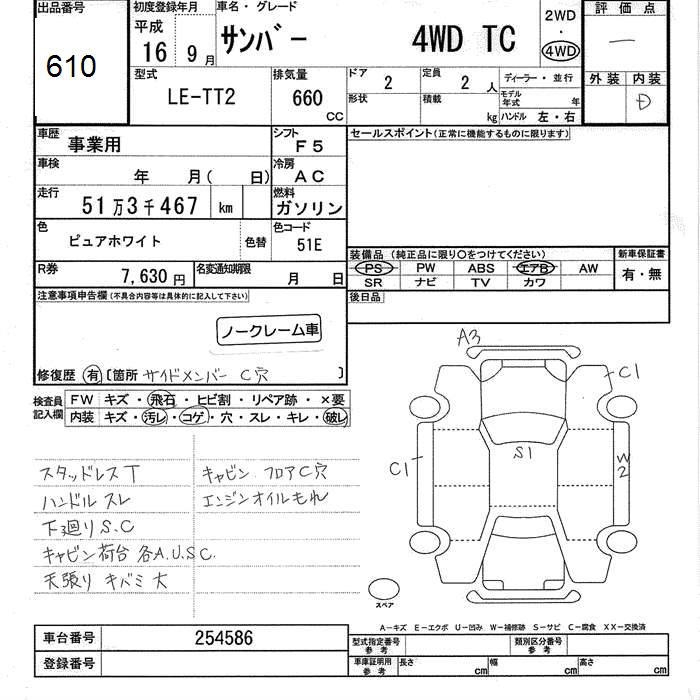 出品番号
610
初度登録年月
平成
16 9月
車名・グレード
サンバー 4WD TC
2WD
・
4WD
評価点
―
外装 内装
D
型式
LE-TT2
排気量
660
CC
ドア 2
定員 2 人
形状
積載 kg
ディーラー・並行
モデル年式 年
ハンドル 左・右
車歴 事業用
シフト F5
車検 年 月( 日)
冷房 AC
走行 51万3千467 km
燃料 ガソリン
色 ピュアホワイト 色替
色コード 51E
R券 7,630円
名変通知期限 月 日
セールスポイント(正常に機能するものに限ります)
装備品(純正品に限り○をつけてください)
PS PW ABS エアB AW
SR ナビ TV カワ
新車保証書
有・無
後日品
注意事項申告欄(不具合内容等は具体的に記入して下さい)
ノークレーム車
修復歴 有 [箇所 サイドメンバー C穴 ]
検査員記入欄
FW キズ・飛石・ヒビ割・リペア跡・×要
内装 キズ・汚レ・コゲ・穴・スレ・キレ・破レ
スタッドレスT
ハンドルスレ
下廻りS.C
キャビン荷台 各A.U.S.C.
天張り キバミ大
キャビン フロアC穴
エンジンオイルもれ
A3
C1
S1
C1
W2
スペア
A―キズ E―エクボ U―凹み W―補修跡 S―サビ C―腐食 XX―交換済
車台番号 254586
登録番号
型式指定番号
参考
類別区分番号
参考
車庫証明用
参考
長さ cm
幅 cm
高さ cm